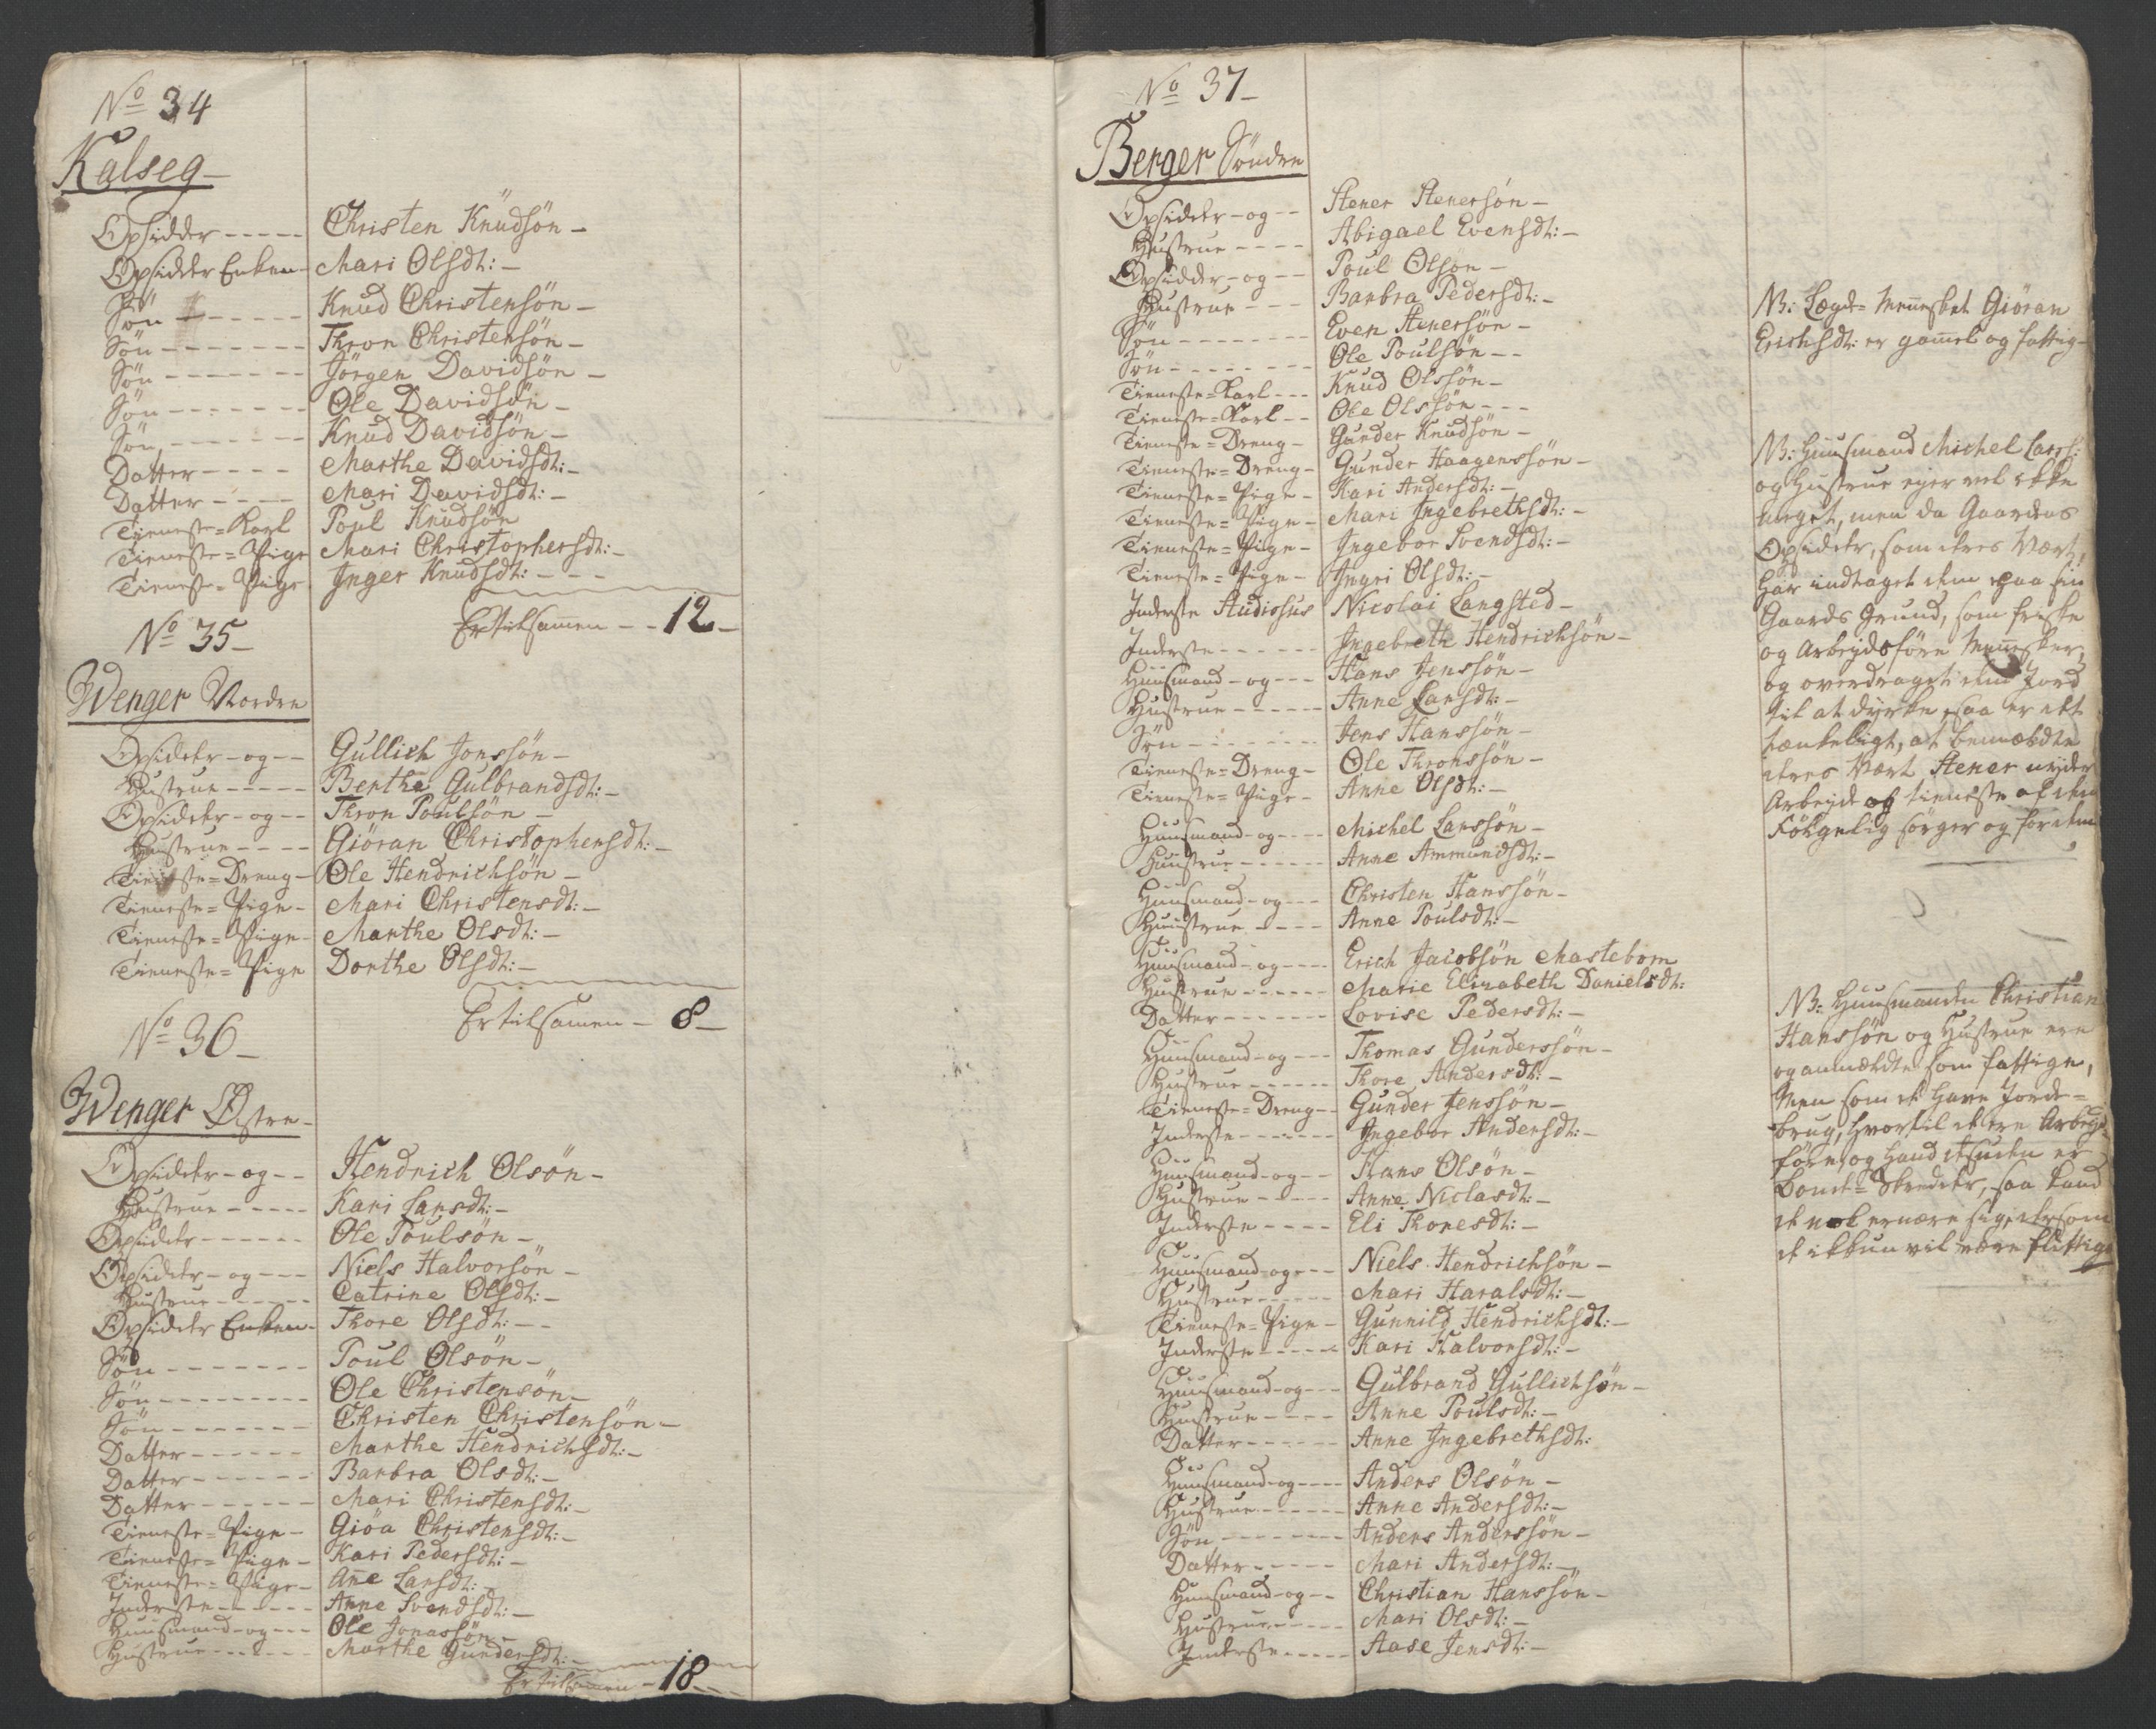 No 34
Kalseg-
Opsidder ----- Christen Knudsön-
Opsidder Enken- Mari Olsdt:-
Sön ----- Knud Christensön-
Sön ------- Thron Christensön-
Sön ------- Jörgen Davidsön-
Sön ------- Ole Davidsön-
Sön ------ Knud Davidsön-
Datter ---- Marthe Davidsdt:-
Datter ---- Mari Davidsdt:-
Tieneste=Karl Poul Knudsön
Tieneste=Pige Mari Christophersdt:-
Tieneste=Pige Inger Knudsdt:---
Er tilsamen -- 12-
No 35-
Wenger Nordre
Opsidder-og-- Gullich Jonssön-
Hustrue ----- Berthe Gulbrandsdt:-
Opsidder-og-- Thron Poulsön-
Hustrue ---- Giöran Christophersdt:-
Tieneste=Dreng- Ole Hendrichsön-
Tieneste=Pige- Mari Christensdt:-
Tieneste=Pige- Marthe Olsdt:-
Tieneste=Pige Dorthe Olsdt:-
Er tilsamen - 8-
No 36-
Wenger Östre-
Opsidder-og-- Hendrich Olsön-
Hustrue ----- Kari Larsdt:-
Opsidder ------ Ole Poulsön-
Opsidder-og--- Niels Halvorsön-
Hustrue ------ Catrine Olsdt:-
Opsidder Enken- Thore Olsdt:--
Sön ------- Poul Olsön-
Sön -------- Ole Christensön-
Sön ------- Christen Christensön-
Datter ------ Marthe Hendrichsdt:-
Datter ------ Barbra Olsdt:-
Datter ------ Mari Christensdt:-
Tieneste=Pige- Giöa Christensdt:-
Tieneste=Pige- Kari Pedersdt:-
Tieneste=Pige- Ane Larsdt:-
Inderste ------ Anne Svendsdt:-
Huusmand-og--- Ole Jonassön-
Hustrue ------ Marthe Gundersdt:-
Er tilsamen - 18--
No 37-
Berger Söndre
Opsidder-og-- Stener Stenersön-
Hustrue ---- Abigael Evensdt:-
Opsidder-og-- Poul Olsön-
Hustrue --- Barbra Pedersdt:-
Sön ------- Even Stenersön-
Sön -------- Ole Poulsön--
Tieneste=Karl--- Knud Olssön-
Tieneste=Karl-- Ole Olssön---
Tieneste=Dreng- Gunder Knudsön-
Tieneste=Dreng- Gunder Haagenssön-
Tieneste=Pige- Kari Andersdt:-
Tieneste=Pige- Mari Ingebrethsdt:-
Tieneste=Pige- Ingebor Svendsdt:-
Tieneste=Pige- Ingri Olsdt:-
Inderste Studiosus Nicolai Langsted-
Inderste ------ Ingebreth Hendrichsön-
Huusmand-og--- Hans Jenssön-
Hustrue ------ Anne Larsdt:-
Sön ------- Jens Hanssön-
Tieneste=Dreng- Ole Thronssön-
Tieneste=Pige- Anne Olsdt:-
Huusmand-og---- Michel Larssön-
Huustrue ------ Anne Ammundsdt:-
Huusmand-og--- Christen Hanssön-
Huustrue ---- Anne Poulsdt:-
Huusmand-og---- Erich Jacobsön Mastebom
Hustrue ------ Marie Elizabeth Danielsdt:
Datter ------- Lovise Pedersdt:-
Huusmand-og--- Thomas Gunderssön-
Hustrue ------ Thore Andersdt:-
Tieneste=Dreng-- Gunder Jenssön-
Inderste ------- Ingebor Andersdt:-
Huusmand-og-- Hans Olsön-
Hustrue ----- Anne Niclasdt:-
Inderste ---- Eli Thoresdt:-
Huusmand-og--- Niels Hendrichsön-
Hustrue ------ Mari Haralsdt:-
Tieneste=Pige- Gunnild Hendrichsdt:-
Inderste ----- Kari Halvorsdt:-
Huusmand-og--- Gulbrand Gullichsön-
Hustrue ---- Anne Poulsdt:-
Datter ------ Anne Ingebrethsdt:
Huusmand-og---- Anders Olsön-
Hustrue ------ Anne Andersdt:-
Sön -------- Anders Anderssön-
Datter ----- Mari Andersdt:-
Huusmand-og-- Christian Hanssön-
Hustrue ----- Mari Olsdt:-
Inderste ----- Aase Jensdt:-
NB: Lægds=Mennesket Giöran
Erichsdt: er gammel og fattig-
NB: Huusmand Michel Larss:
og Hustrue ejer vel ikke
noget, men da Gaardens
Opsidder, som deres Vært,
har indtaget dem paa sin
Gaards Grund, som friske
og Arbejdsföre Mennesker,
og overdraget dem Jord
til at dyrke, saa er det
tænkeligt, at bemældte
deres Vært Stener nyder
Arbejde og tieneste af dem
Fölgelig sörger og for dem
NB: Huusmanden Christian
Hanssön og Hustrue ere
og anmældte som fattige,
Men som de have Jorde=
brug, hvortil de ere Arbejds
före, og hand desuden er
Bonde=Skredder, saa kand
de vel ernære sig, dersom
de ikkun vil være flittige